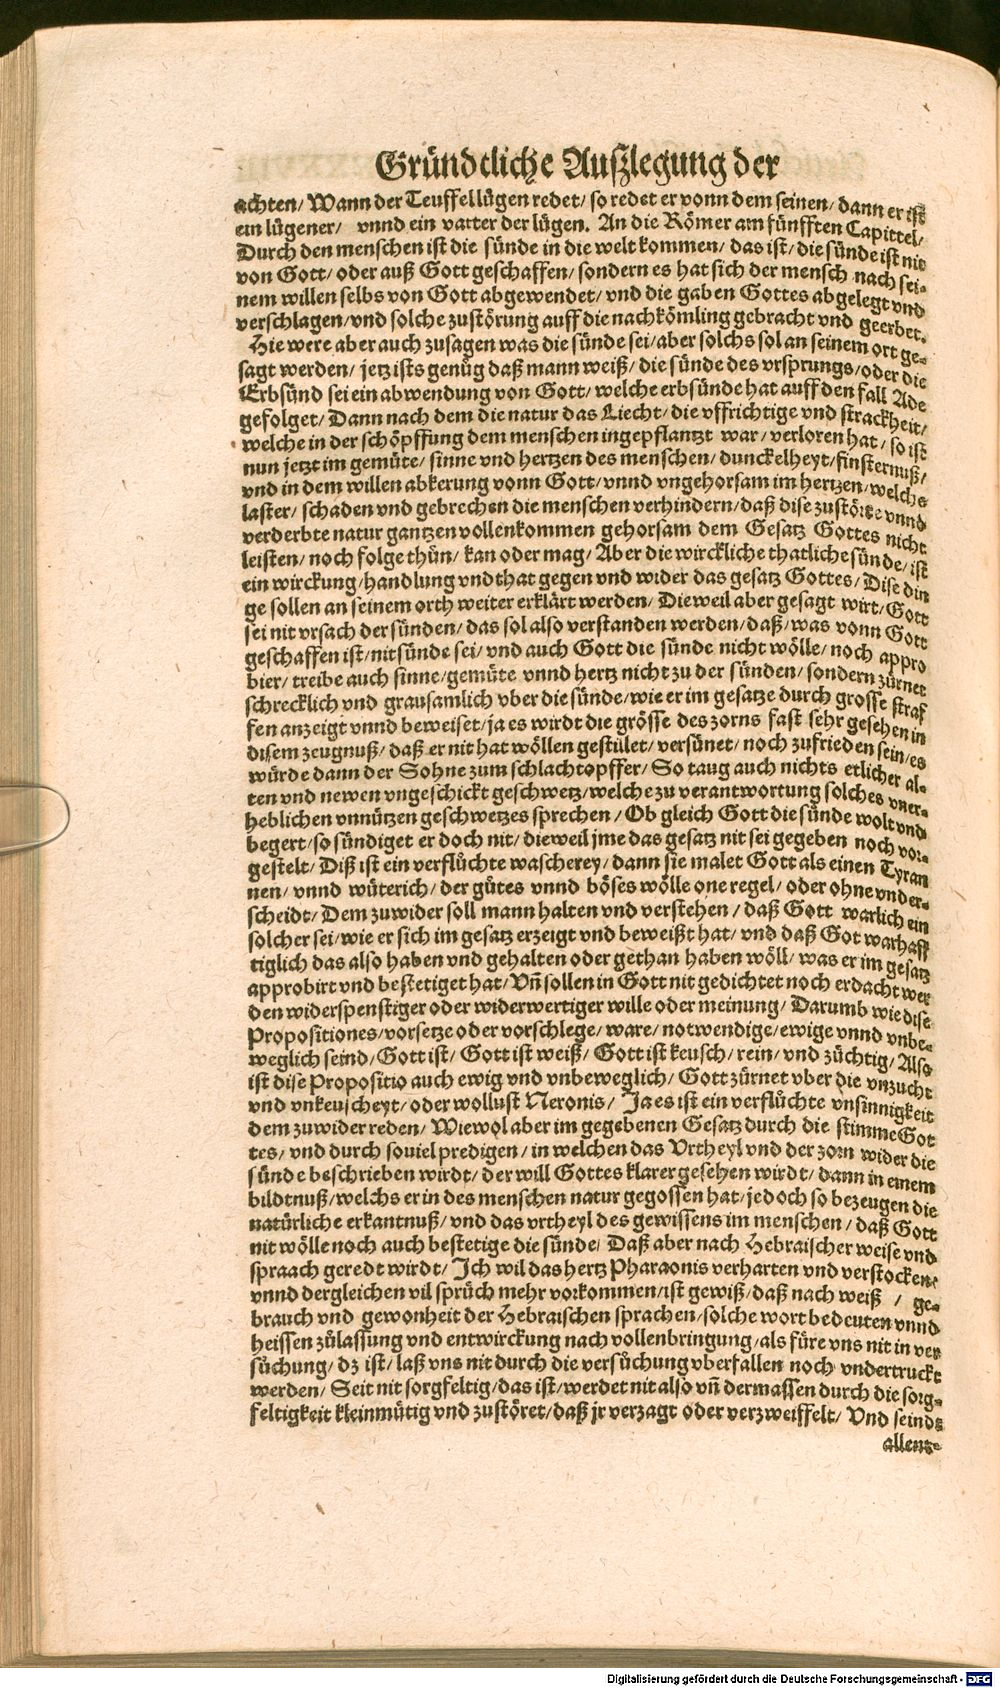 Gründtliche Außlegung der
achten/ Wann der Teuffel lügen redet/ so redet er vonn dem seinen/ dann er ist
ein lügener/ vnnd ein vatter der lügen. An die Römer am fünfften Capittel/
Durch den menschen ist die sünde in die welt kommen/ das ist/ die sünde ist nit
von Gott/ oder auß Gott geschaffen/ sondern es hat sich der mensch nach sei-
nem willen selbs von Gott abgewendet/ vnd die gaben Gottes abgelegt vnd
verschlagen/ vnd solche zustörung auff die nachkömling gebracht vnd geerbet.
Hie were aber auch zusagen was die sünde sei/ aber solchs sol an seinem ort ge-
sagt werden/ jetz ists genüg daß mann weiß/ die sünde des vrsprungs/ oder die
Erbsünd sei ein abwendung von Gott/ welche erbsünde hat auff den fall Ade
gefolget/ Dann nach dem die natur das Liecht/ die vffrichtige vnd strackheit/
welche in der schöpffung dem menschen ingepflantzt war/ verloren hat/ so ist
nun jetzt im gemüte/ sinne vnd hertzen des menschen/ dunckelheyt/ finsternuß/
vnd in dem willen abkerung vonn Gott/ vnnd vngehorsam im hertzen/ welche
laster/ schaden vnd gebrechen die menschen verhindern/ daß dise zustörte vnnd
verderbte natur gantzen vollenkommen gehorsam dem Gesatz Gottes nicht
leisten/ noch folge thün/ kan oder mag/ Aber die wirckliche thatliche sünde/ ist
ein wirckung/ handlung vnd that gegen vnd wider das gesatz Gottes/ Dise din
ge sollen an seinem orth weiter erklärt werden/ Dieweil aber gesagt wirt/ Gott
sei nit vrsach der sünden/ das sol also verstanden werden/ daß/ was vonn Gott
geschaffen ist/ nit sünde sei/ vnd auch Gott die sünde nicht wölle/ noch appro
bier/ treibe auch sinne/ gemüte vnnd hertz nicht zu der sünden/ sondern zürnet
schrecklich vnd grausamlich vber die sünde/ wie er im gesatze durch grosse straf
fen anzeigt vnnd beweiset/ ja es wirdt die grösse des zorns fast sehr gesehen in
disem zeugnuß/ daß er nit hat wöllen gestület/ versünet/ noch zufrieden sein/ es
würde dann der Sohne zum schlachtopffer/ So taug auch nichts etlicher al-
ten vnd newen vngeschickt geschwetz/ welche zu verantwortung solches vner-
heblichen vnnützen geschwetzes sprechen/ Ob gleich Gott die sünde wolt vnd
begert/ so sündiget er doch nit/ dieweil jme das gesatz nit sei gegeben noch vor-
gestelt/ Diß ist ein verflüchte wascherey/ dann sie malet Gott als einen Tyran
nen/ vnnd wüterich/ der gütes vnnd böses wölle one regel/ oder ohne vnder-
scheidt/ Dem zuwider soll mann halten vnd verstehen/ daß Gott warlich ein
solcher sei/ wie er sich im gesatz erzeigt vnd beweißt hat/ vnd daß Got warhaff
tiglich das also haben vnd gehalten oder gethan haben wöll/ was er im gesatz
approbirt vnd bestetiget hat/ Vñ sollen in Gott nit gedichtet noch erdacht wer
den widerspenstiger oder widerwertiger wille oder meinung/ Darumb wie dise
Propositiones/ vorsetze oder vorschlege/ ware/ notwendige/ ewige vnnd vnbe-
weglich seind/ Gott ist/ Gott ist weiß/ Gott ist keusch/ rein/ vnd züchtig/ Also
ist dise Propositio auch ewig vnd vnbeweglich/ Gott zürnet vber die vnzucht
vnd vnkeuscheyt/ oder wollust Neronis/ Ja es ist ein verflüchte vnsinnigkeit
dem zuwider reden/ Wiewol aber im gegebenen Gesatz durch die stimme Got
tes/ vnd durch souiel predigen/ in welchen das Vrtheyl vnd der zorn wider die
sünde beschrieben wirdt/ der will Gottes klarer gesehen wirdt/ dann in einem
bildtnuß/ welchs er in des menschen natur gegossen hat/ jedoch so bezeugen die
natürliche erkantnuß/ vnd das vrtheyl des gewissens im menschen/ daß Gott
nit wölle noch auch bestetige die sünde/ Daß aber nach Hebraischer weise vnd
spraach geredt wirdt/ Ich wil das hertz Pharaonis verharten vnd verstocken/
vnnd dergleichen vil sprüch mehr vorkommen/ ist gewiß/ daß nach weiß/ ge-
brauch vnd gewonheit der Hebraischen sprachen/ solche wort bedeuten vnnd
heissen zülassung vnd entwirckung nach vollenbringung/ als füre vns nit in ver
süchung/ dz ist/ laß vns nit durch die versüchung vberfallen noch vndertruckt
werden/ Seit nit sorgfeltig/ das ist/ werdet nit also vñ dermassen durch die sorg-
feltigkeit kleinmütig vnd zustöret/ daß jr verzagt oder verzweiffelt/ Vnd seindt
allent-
Digitalisierung gefördert durch die Deutsche Forschungsgemeinschaft - DFG